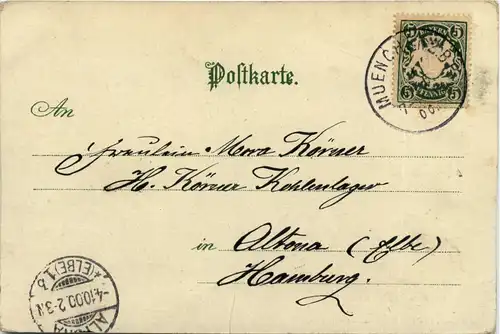 BAYERN
5 5
5 PFENNIG 5
MUENCHEN
Postkarte.
An
Fräulein Mora Körner
H. Körner Kohlenlager
in Altona (Elbe)
Hamburg.
*(ELBE) 1 b
-4.10.00. 2-3.N
ALTONA